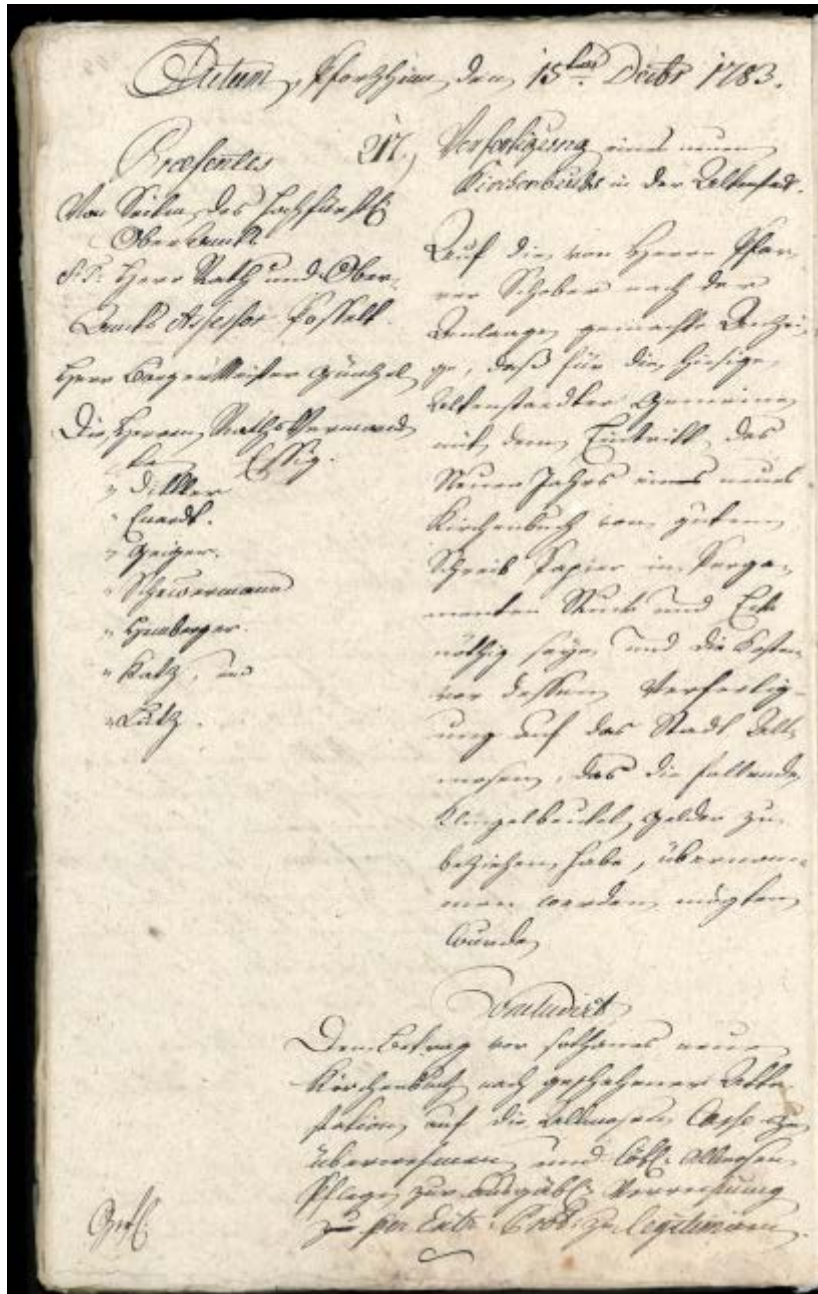 Actum, Pforzheim, den 15ten Decbr 1783.
Praesentes
Von Seiten des Hochfürstl.
Oberamts
S. T. Herr Rath und Ober-
Amts Assessor Posselt.
Herr BurgerMeister Günzel
Die Herren RathsVerwand
ten Essig.
" Dittler
" Geiger.
" Scheuermann
" Hemberger.
" Katz, und
" Lutz.
217., Verfertigung eines neuen
Kirchenbuchs in der Altenstadt.
Auf die von Herrn Pfar-
rer Schober nach der
Anlage gemachte Anzei-
ge, daß für die hiesige
Altenstaedter Gemeine
mit dem Eintritt des
Neuen Jahrs eines neues
Kirchenbuch von gutem
Schreib Papier in Perga-
menten Ruck und Eck
nöthig seye und die Kosten
vor dessen Verfertig-
ung auf das Stadt All-
mosen, das die fallende
Klingelbeutel gelder zu
beziehen habe, übernom-
men werden mögten
wurde
Concludirt
Den Betrag vor solhanes neue
Kirchenbuch nach geschehener Atte-
station auf die Allmosen Casse zu
übernehmen und löbl. Allmosen
Pflege zur Ausgäbl. Verrechnung
per Extr. Prot. zu legitimiren.